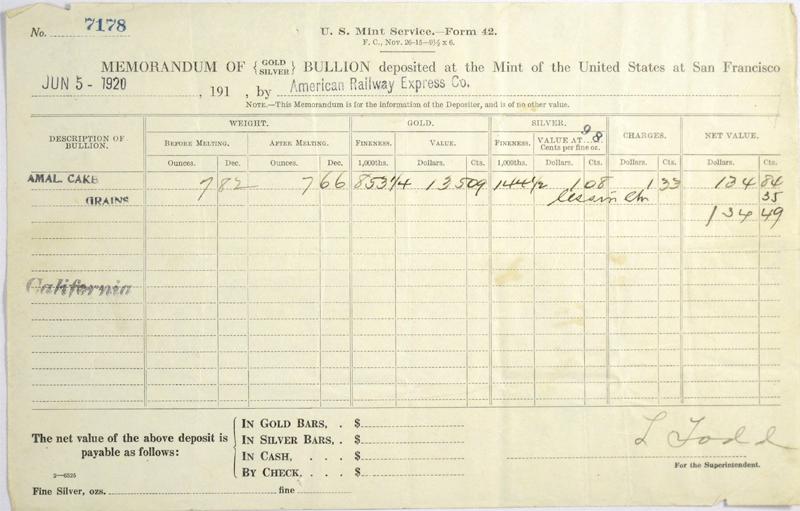 No. 7178
U. S. Mint Service.—Form 42.
F. C., Nov. 26-15—9½ x 6.
MEMORANDUM OF {GOLD SILVER} BULLION deposited at the Mint of the United States at San Francisco
JUN 5 - 1920 , 191 , by American Railway Express Co.
NOTE.—This Memorandum is for the information of the Depositor, and is of no other value.
DESCRIPTION OF BULLION. WEIGHT. GOLD. SILVER. CHARGES. NET VALUE.
BEFORE MELTING. AFTER MELTING. FINENESS. VALUE. FINENESS. VALUE AT 98 Cents per fine oz.
Ounces. Dec. Ounces. Dec. 1,000ths. Dollars. Cts. 1,000ths. Dollars. Cts. Dollars. Cts. Dollars. Cts.
AMAL. CAKE 7 82 7 66 853¼ 135 09 144½ 1 08 1 33 134 84
GRAINS less 35
134 49
California
The net value of the above deposit is payable as follows:
IN GOLD BARS, . $
IN SILVER BARS, . $
IN CASH, . . . . $
BY CHECK, . . . $
L Todd
For the Superintendent.
2—6525
Fine Silver, ozs. fine